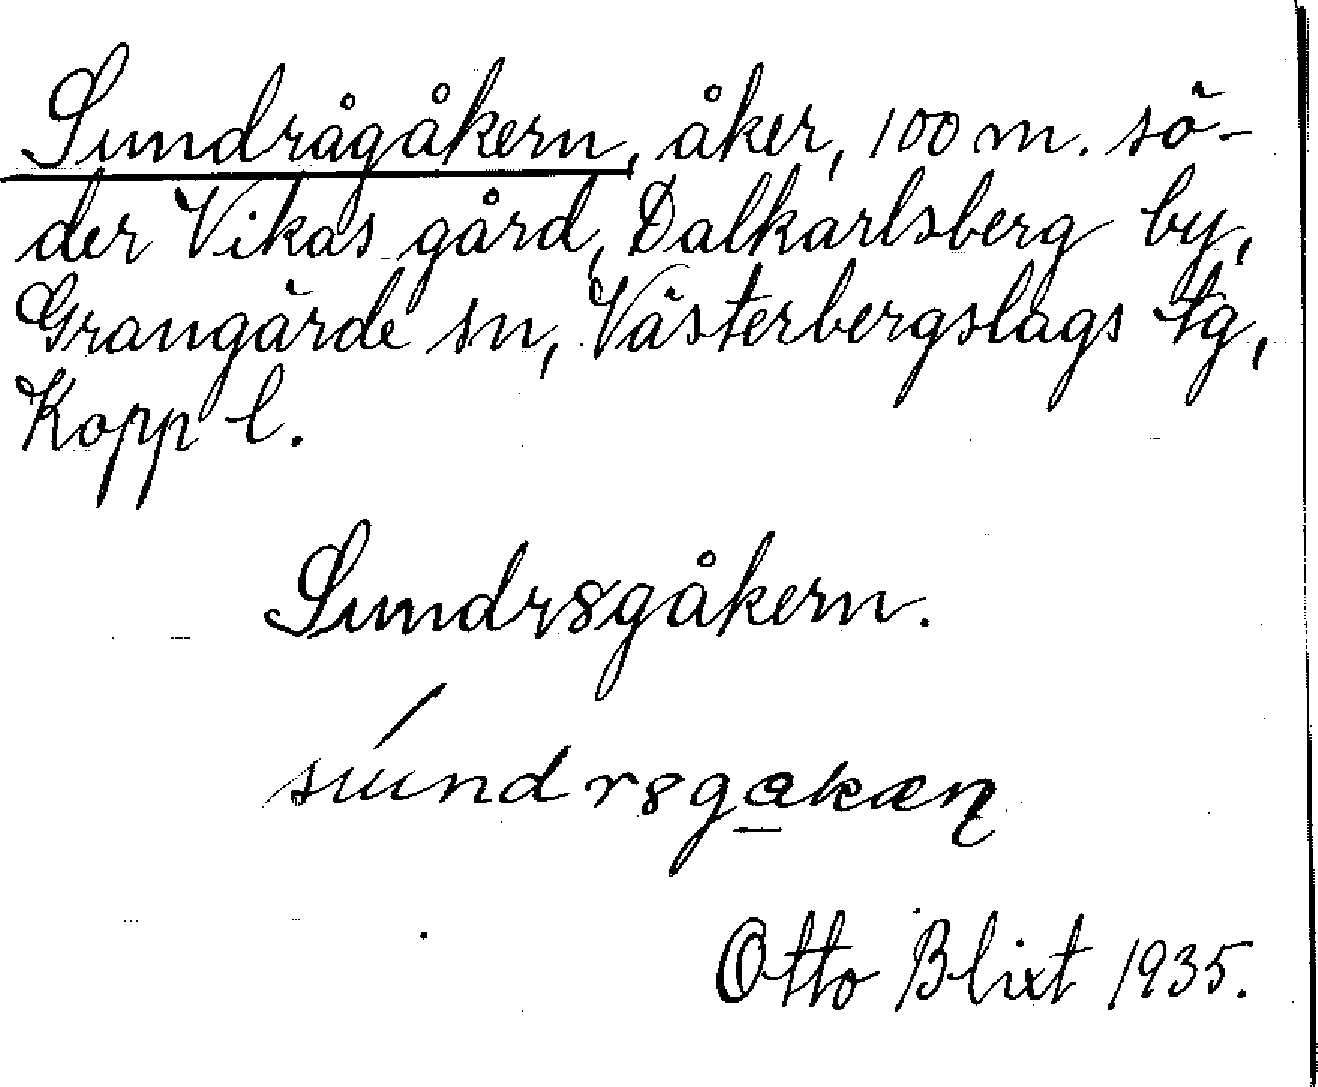 Sundrågåkern, åker, 100 m. sö-
der Vikas gård, Dalkarlsberg by,
Grangärde sn, Västerbergslags tg,
Kopp l.
Sundr8gåkern.
súndr8gakæn
Otto Blixt 1935.